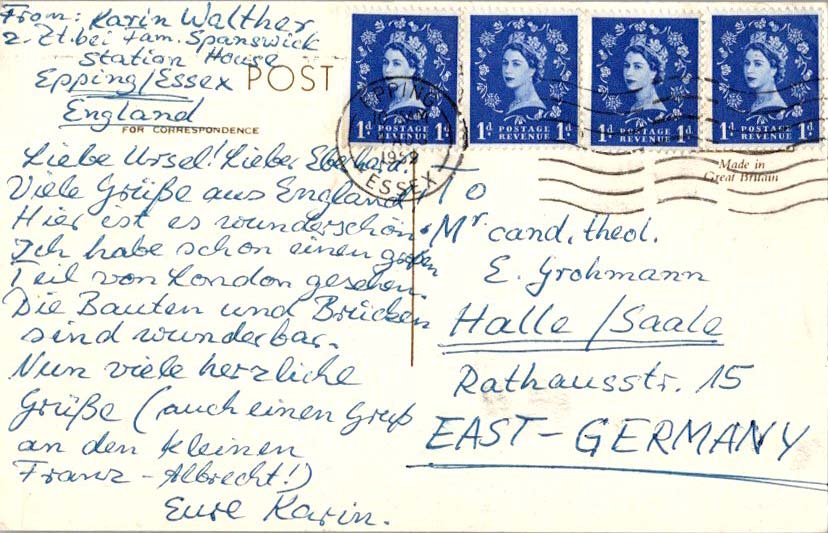 From: Karin Walther
z. Zt. bei Fam. Spanswick
Station House
Epping/Essex
England
POST
FOR CORRESPONDENCE
1d POSTAGE REVENUE 1d
1d POSTAGE REVENUE 1d
1d POSTAGE REVENUE 1d
1d POSTAGE REVENUE 1d
EPPING
1959
ESSEX
Made in
Great Britain
Liebe Ursel! Lieber Eberhard!
Viele Grüße aus England!
Hier ist es wunderschön.
Ich habe schon einen großen
Teil von London gesehen.
Die Bauten und Brücken
sind wunderbar.
Nun viele herzliche
Grüße (auch einen Gruß
an den kleinen
Franz-Albrecht!)
Eure Karin.
To
Mr cand. theol.
E. Grohmann
Halle/Saale
Rathausstr. 15
EAST-GERMANY